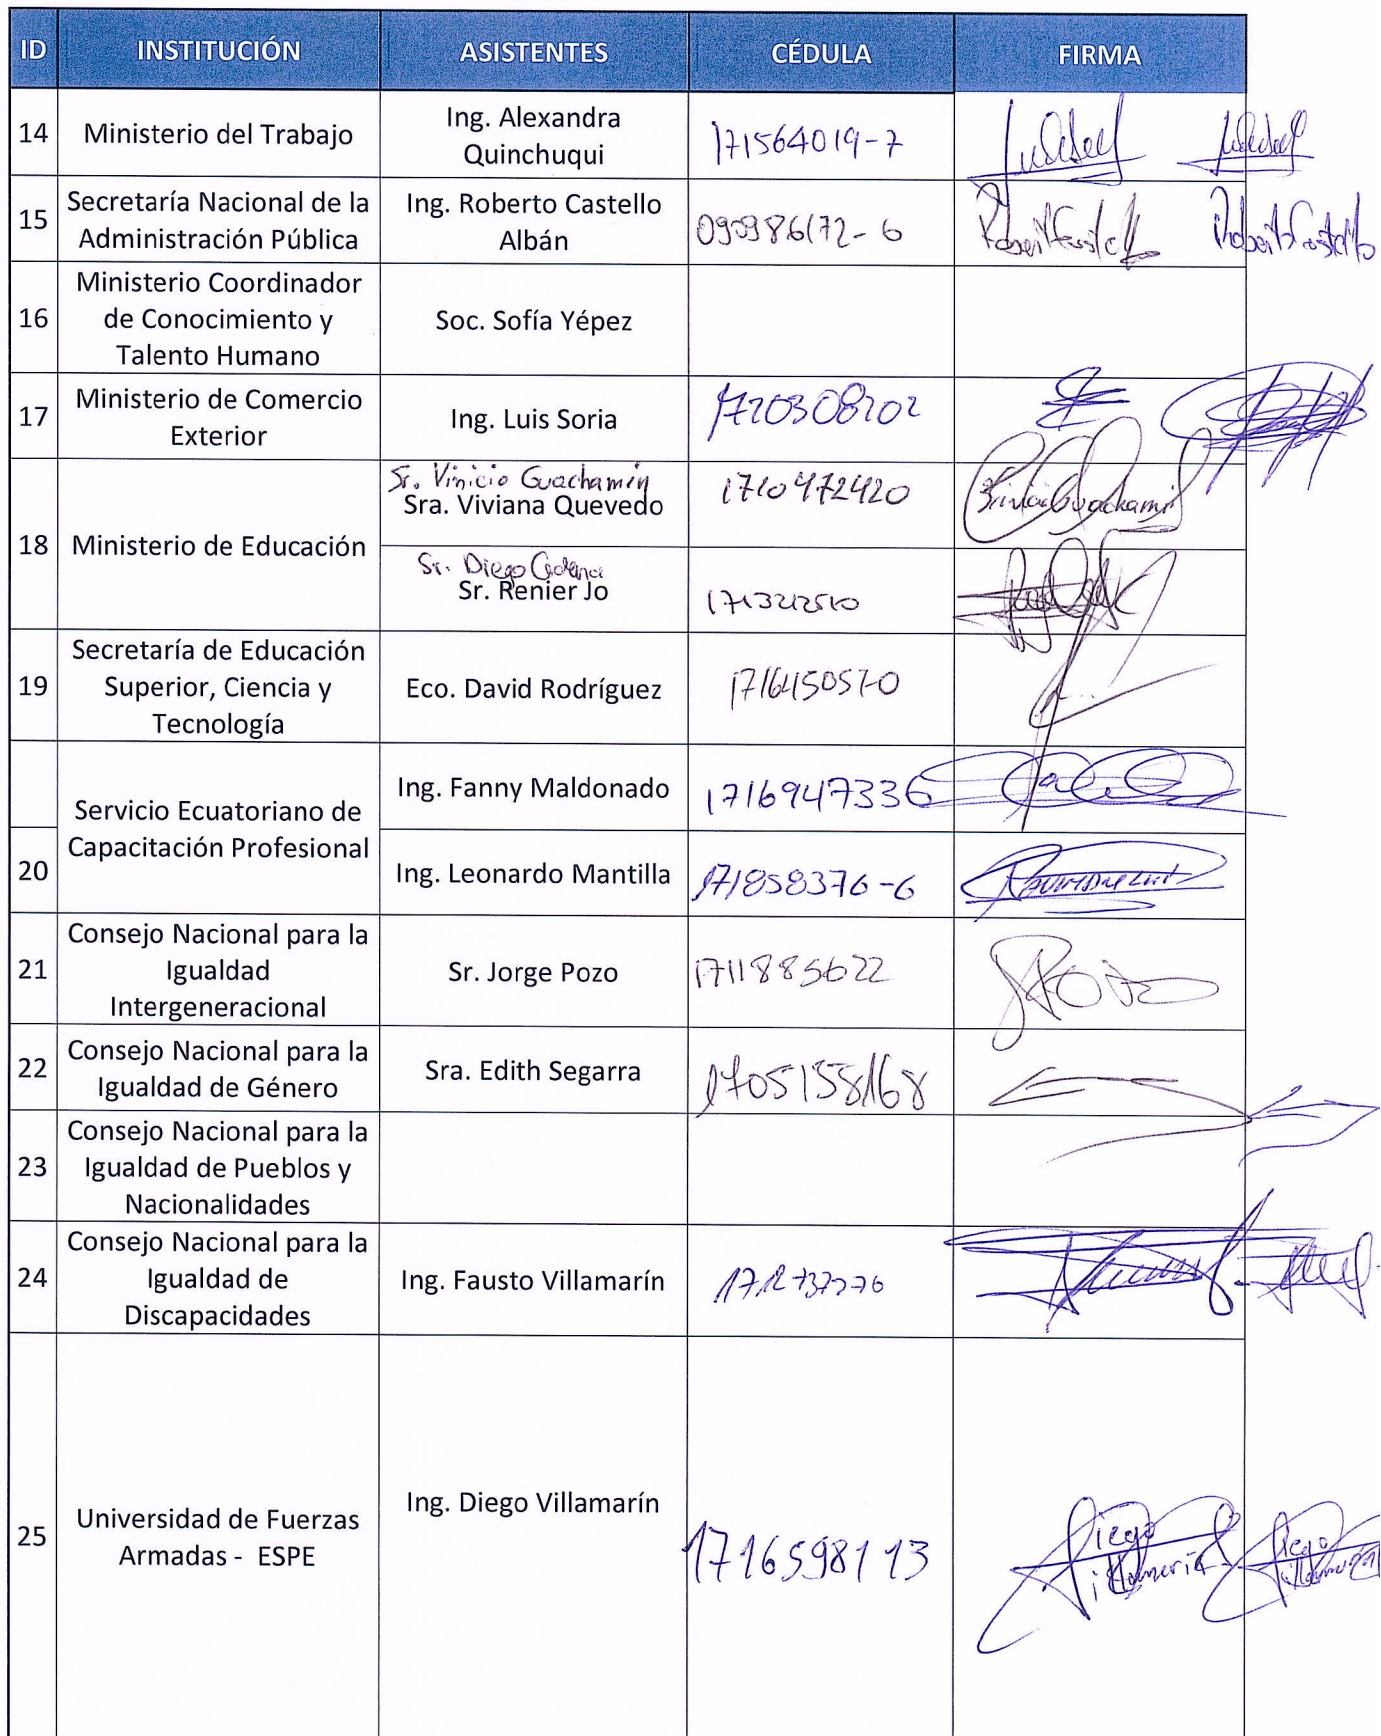 ID INSTITUCIÓN ASISTENTES CÉDULA FIRMA
14 Ministerio del Trabajo
Ing. Alexandra
Quinchuqui
171564019-7
15
Secretaría Nacional de la
Administración Pública
Ing. Roberto Castello
Albán
16
Ministerio Coordinador
de Conocimiento y
Talento Humano
Soc. Sofía Yépez
17
Ministerio de Comercio
Exterior
Ing. Luis Soria
1720308202
18 Ministerio de Educación
Sr. Vinicio Guachamín
Sra. Viviana Quevedo
1710472420
Sr. Diego Cadena
Sr. Renier Jo
19
Secretaría de Educación
Superior, Ciencia y
Tecnología
Eco. David Rodríguez
20
Servicio Ecuatoriano de
Capacitación Profesional
Ing. Fanny Maldonado
1716947336
Ing. Leonardo Mantilla
171858376-6
21
Consejo Nacional para la
Igualdad
Intergeneracional
Sr. Jorge Pozo
1711885622
22
Consejo Nacional para la
Igualdad de Género
Sra. Edith Segarra
1705155168
23
Consejo Nacional para la
Igualdad de Pueblos y
Nacionalidades
24
Consejo Nacional para la
Igualdad de
Discapacidades
Ing. Fausto Villamarín
25
Universidad de Fuerzas
Armadas - ESPE
Ing. Diego Villamarín
1716598113